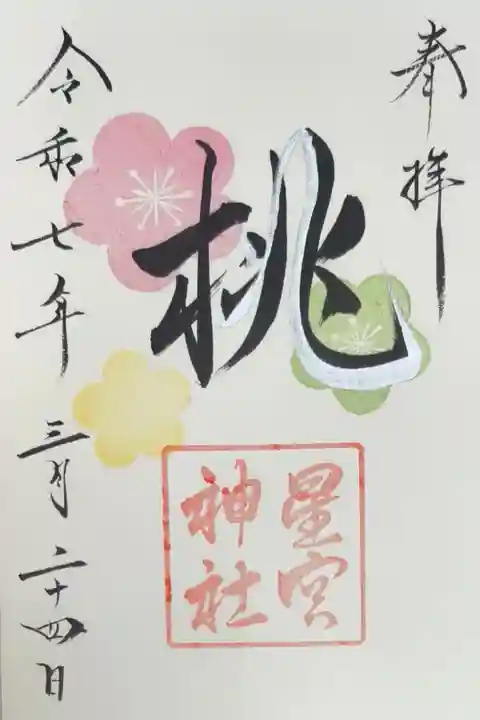 奉拝
桃
星宮
神社
令和七年 三月二十四日